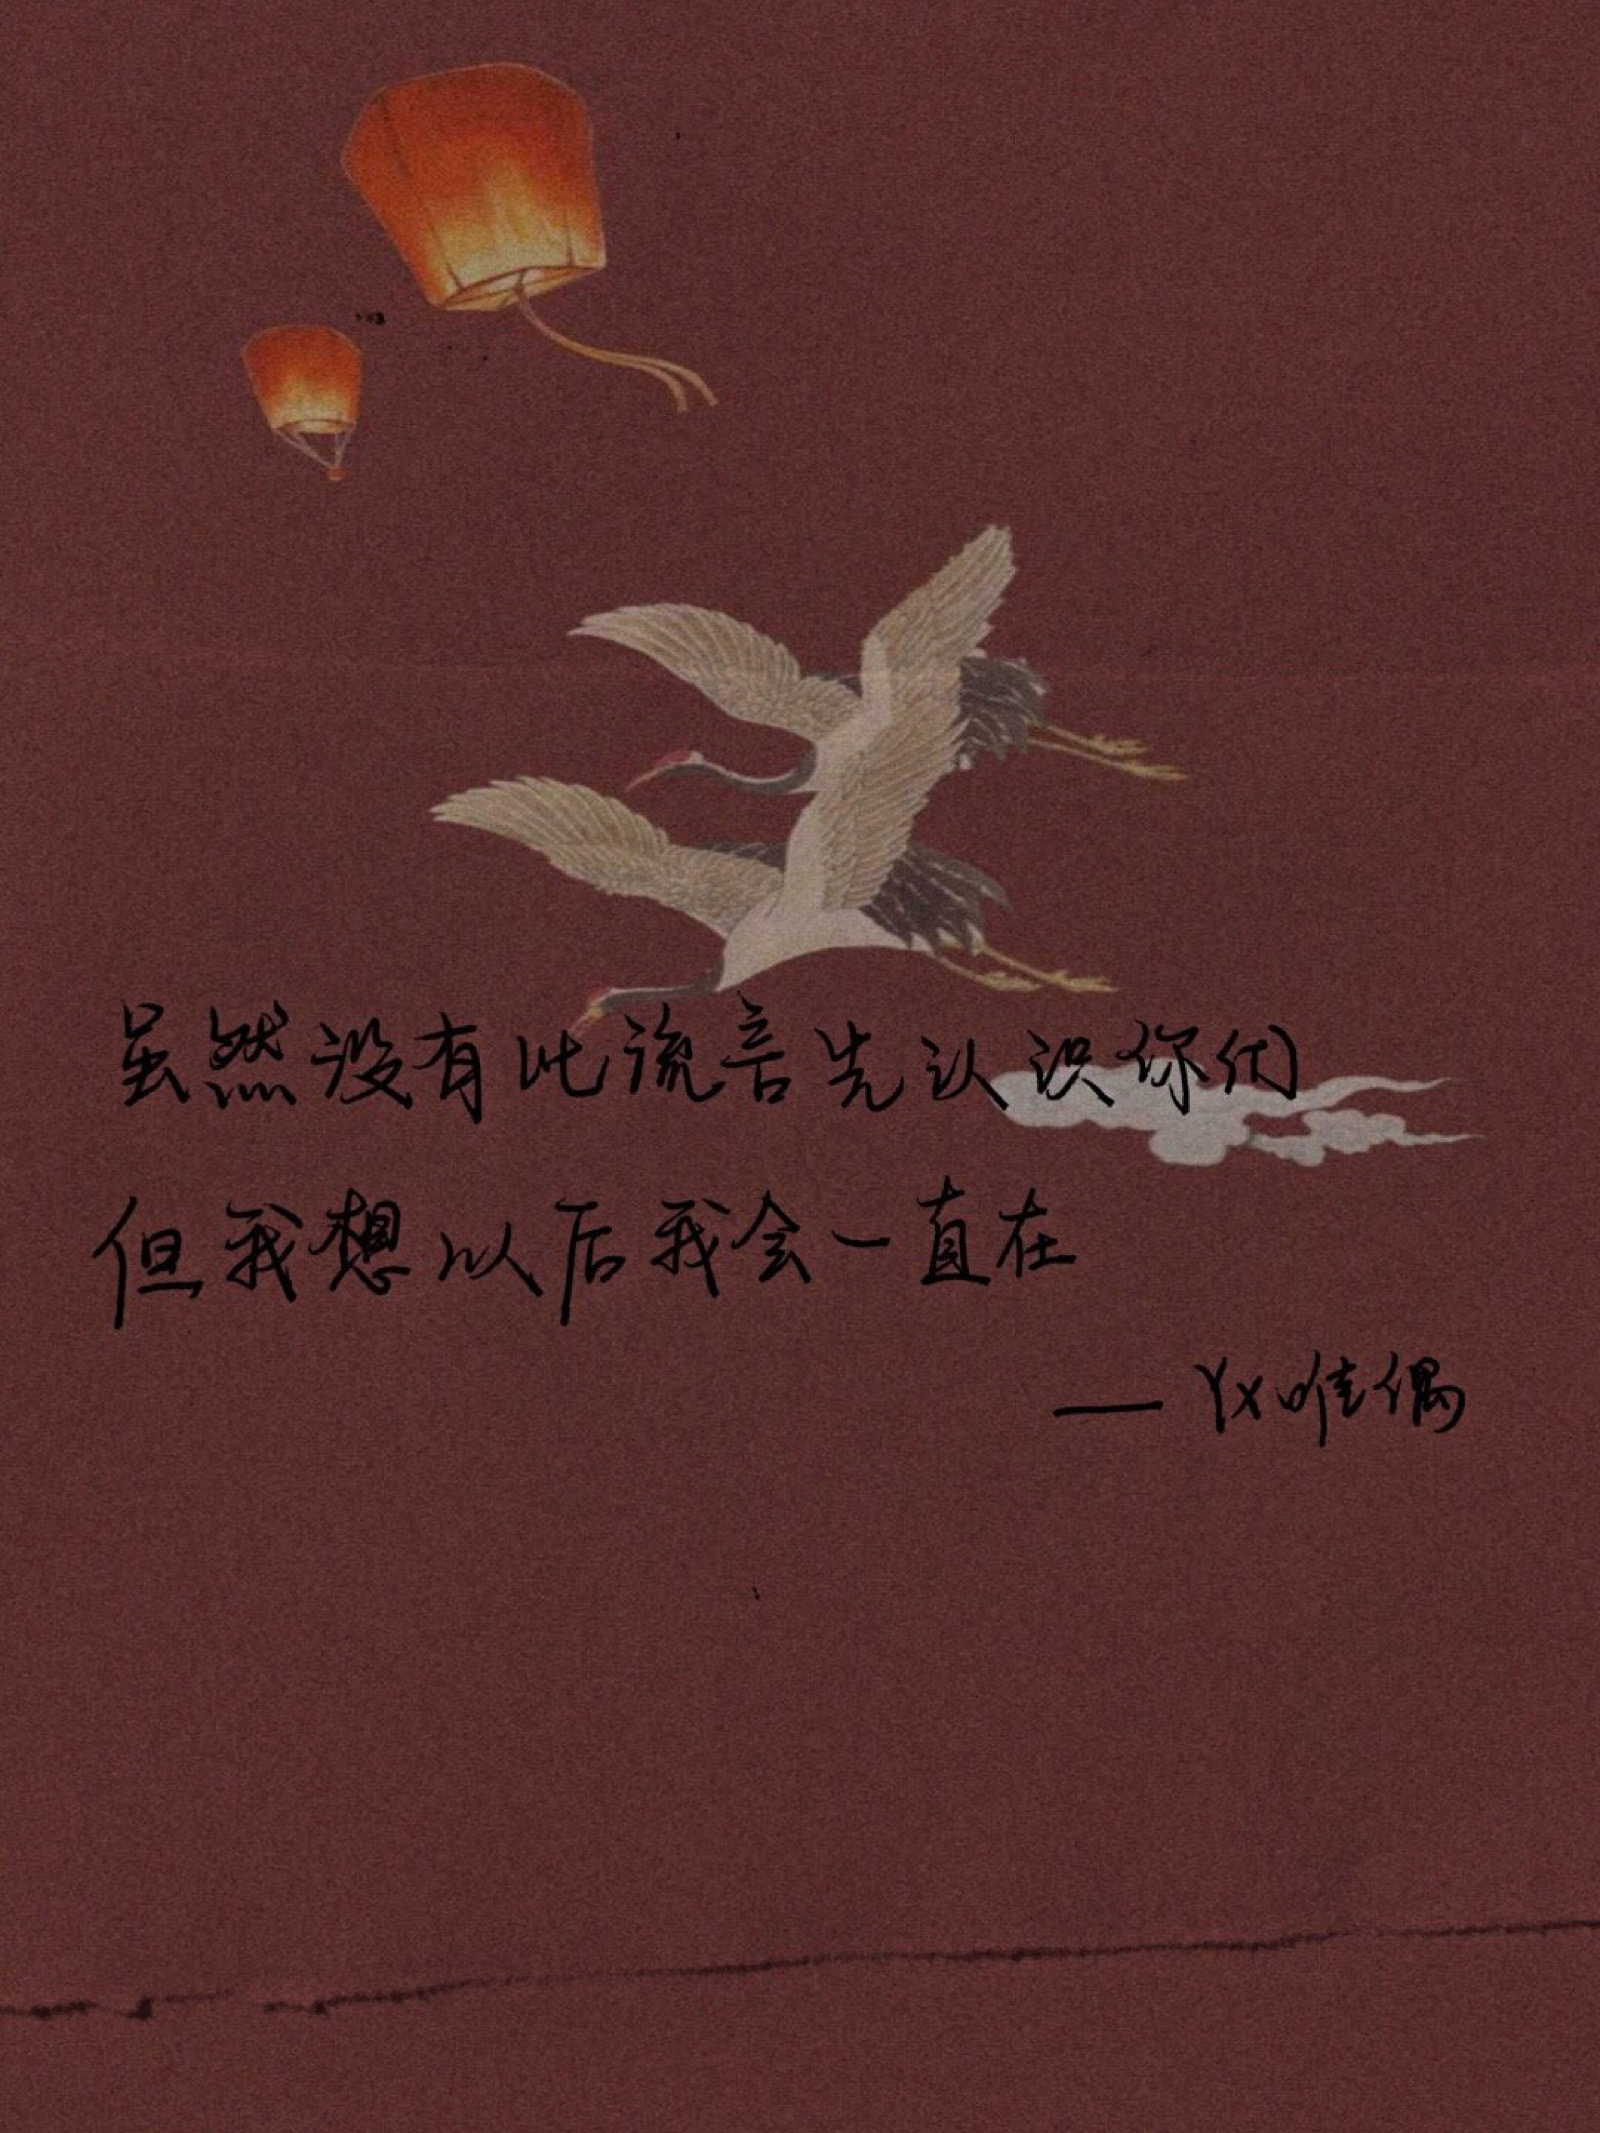 虽然没有比流言先认识你们
但我想以后我会一直在
—— YX唯偶